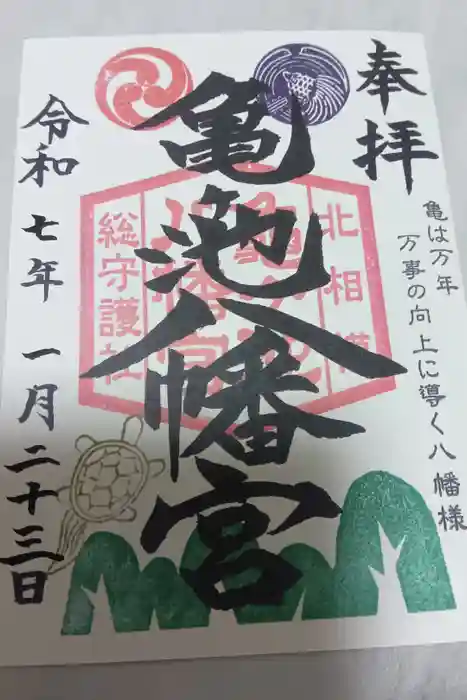 奉拝
亀は万年
万事の向上に導く八幡様
北相模
総守護社
亀ヶ池
八幡宮
亀池八幡宮
令和七年一月二十三日